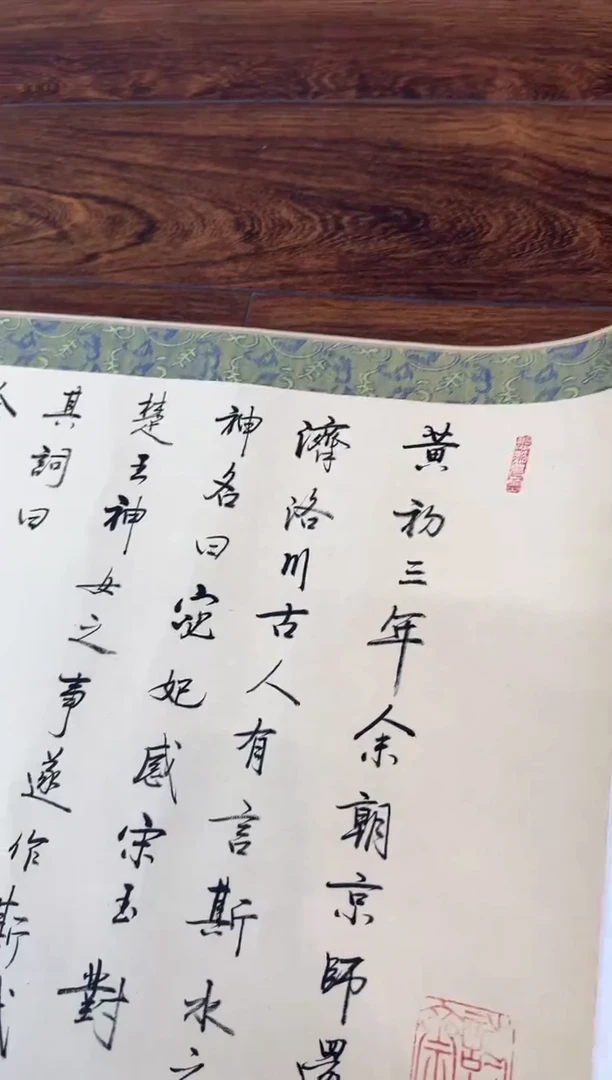 黄初三年余朝京師還
濟洛川古人有言斯水之
神名曰宓妃感宋玉對
楚王神女之事遂作斯
其詞曰